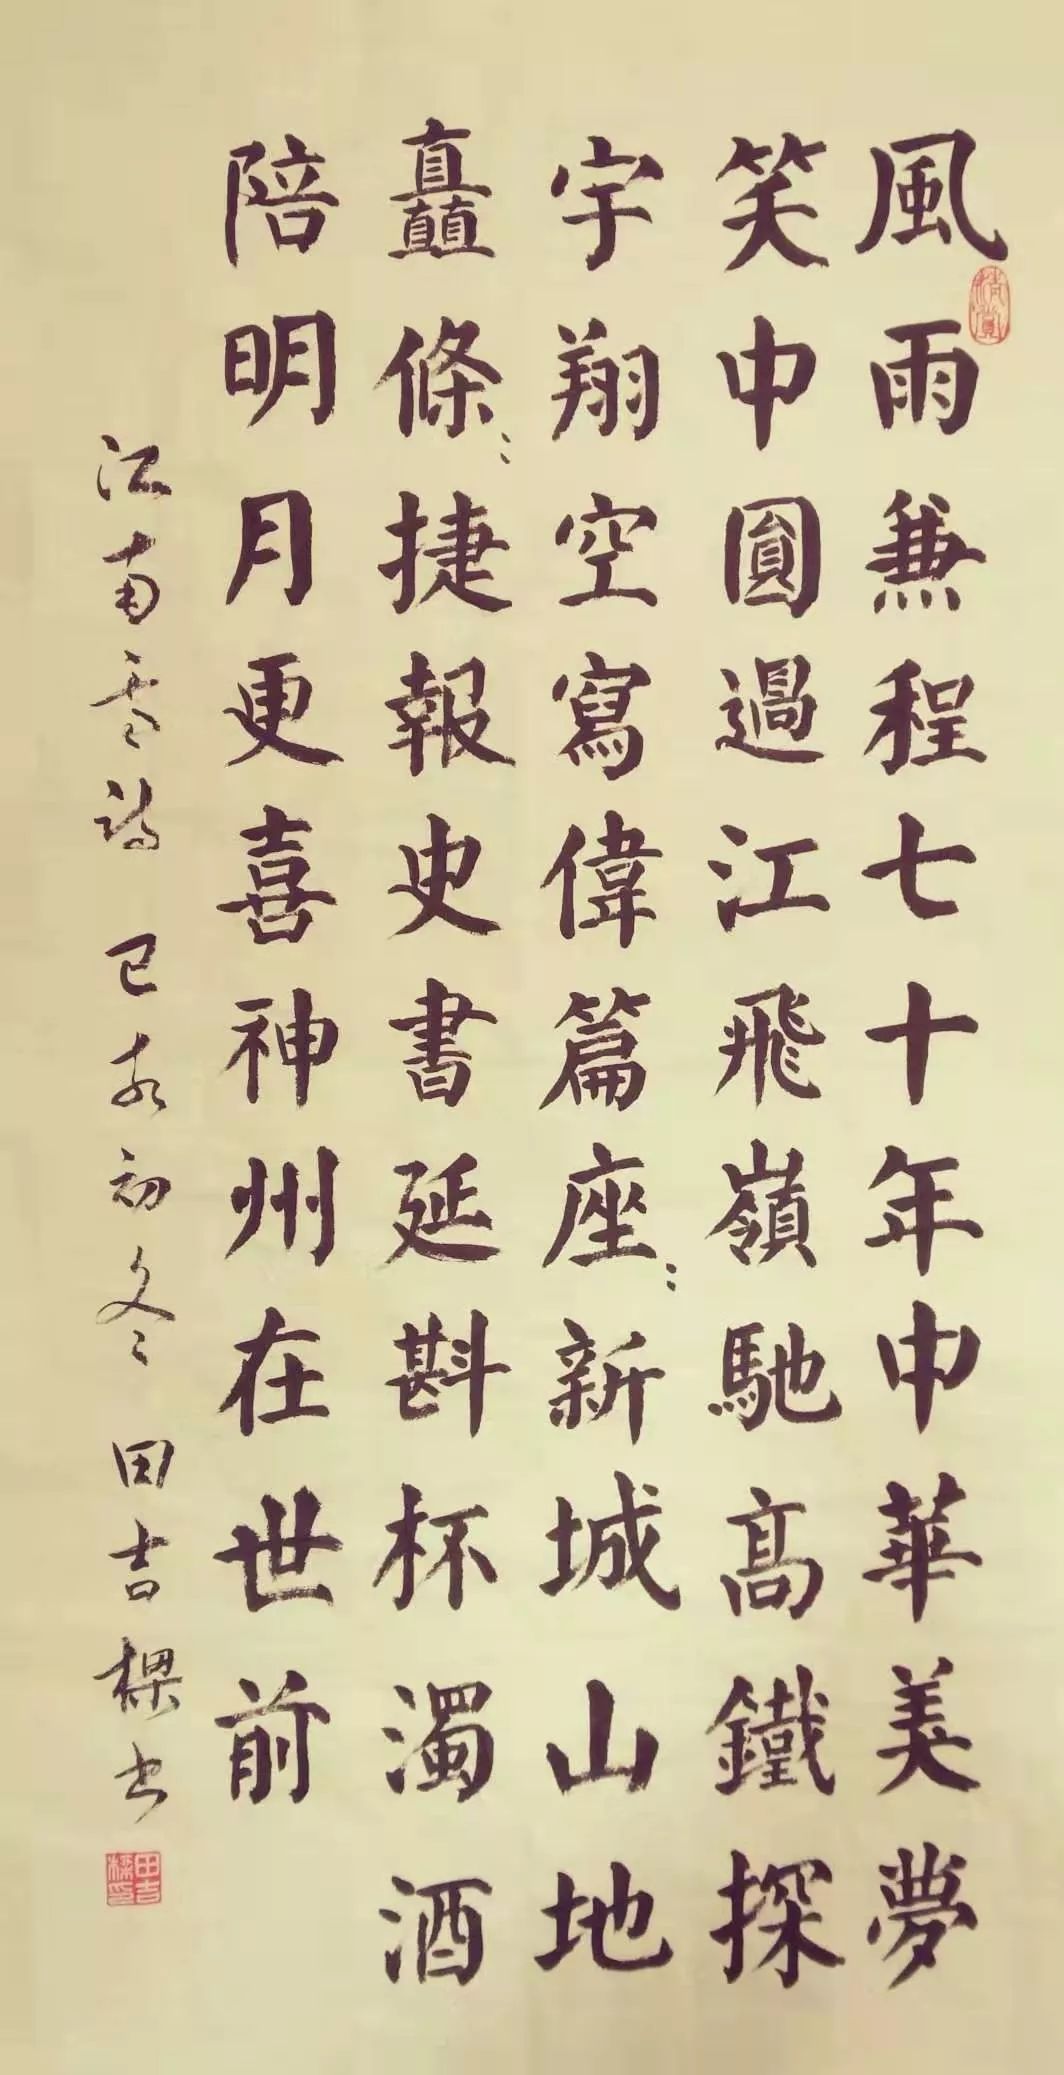 風雨兼程七十年中華美夢
笑中圓過江飛嶺馳高鐵探
宇翔空寫偉篇座〻新城山地
矗條〻捷報史書延斟杯濁酒
陪明月更喜神州在世前
江南雪詩 己亥初冬 田吉樑书
清賞
田吉樑印